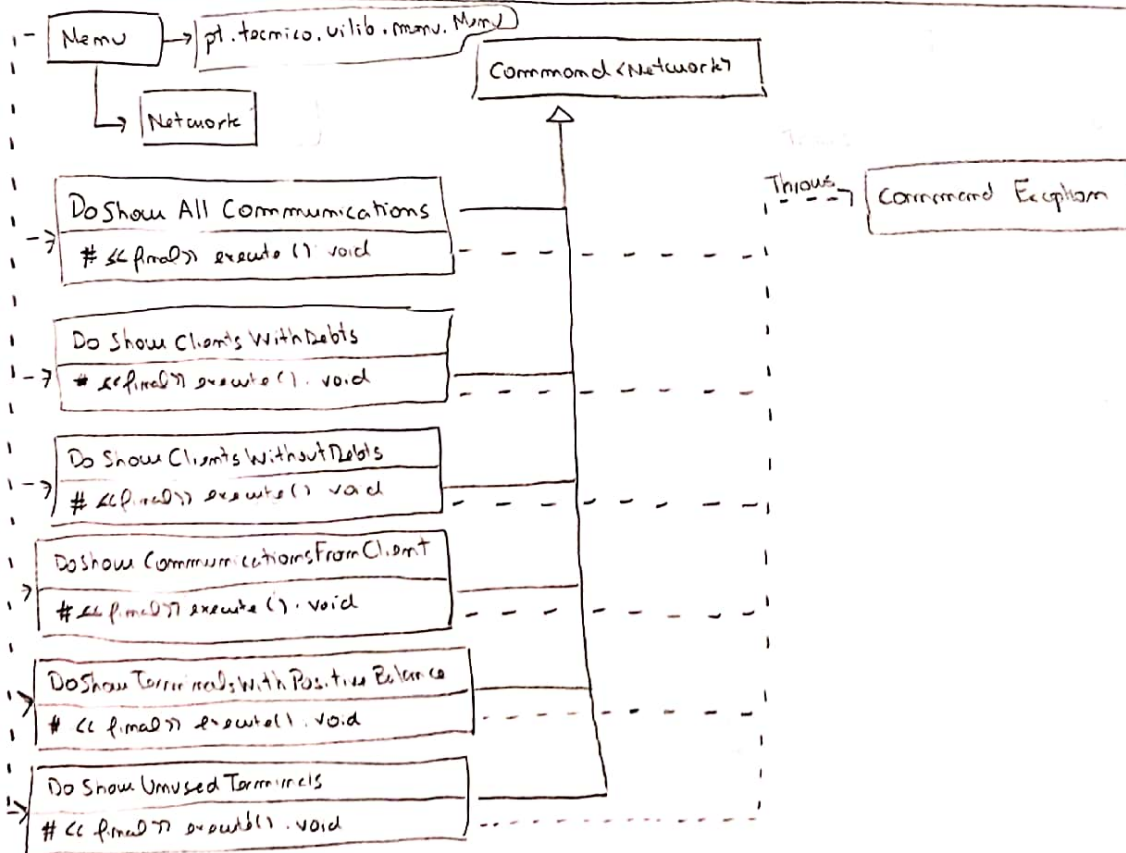 Menu
pt.tecnico.uilib.menu.Menu
Command<Network>
Network
Throws
Command Exception
DoShow All Communications
# <<final>> execute() void
Do Show Clients WithDebts
# <<final>> execute(). void
Do Show Clients WithoutDebts
# <<final>> execute() void
DoShow CommunicationsFromClient
# <<final>> execute(). void
DoShow TerminalsWithPositive Balance
# <<final>> execute(). void
Do Show Unused Terminals
# <<final>> execute(). void